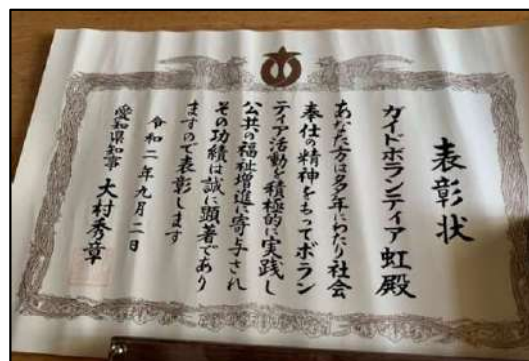 表彰状
ガイドボランティア虹殿
あなた方は多年にわたり社会
奉仕の精神をもってボラン
ティア活動を積極的に実践し
公共の福祉増進に寄与され
その功績は誠に顕著であり
ますので表彰します
令和二年九月二日
愛知県知事 大村秀章